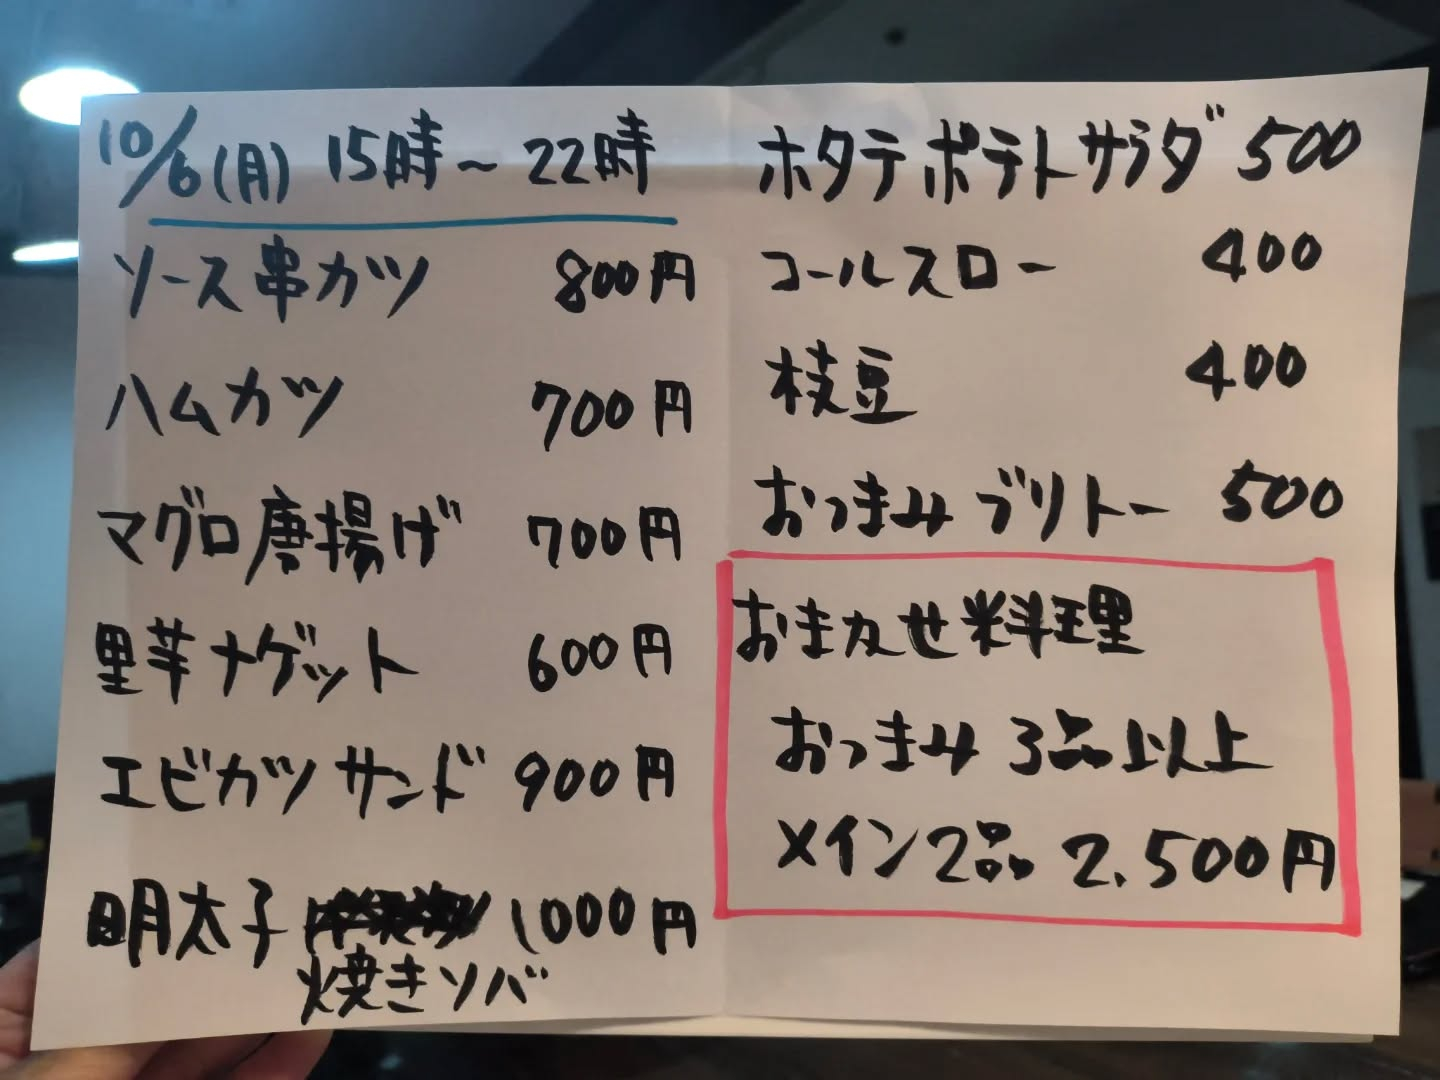 10/6(月) 15時~22時
ソース串カツ 800円
ハムカツ 700円
マグロ唐揚げ 700円
里芋ナゲット 600円
エビカツサンド 900円
明太子 1000円
焼きソバ
ホタテポテトサラダ 500
コールスロー 400
枝豆 400
おつまみブリトー 500
おまかせ料理
おつまみ 3品以上
メイン2品 2.500円